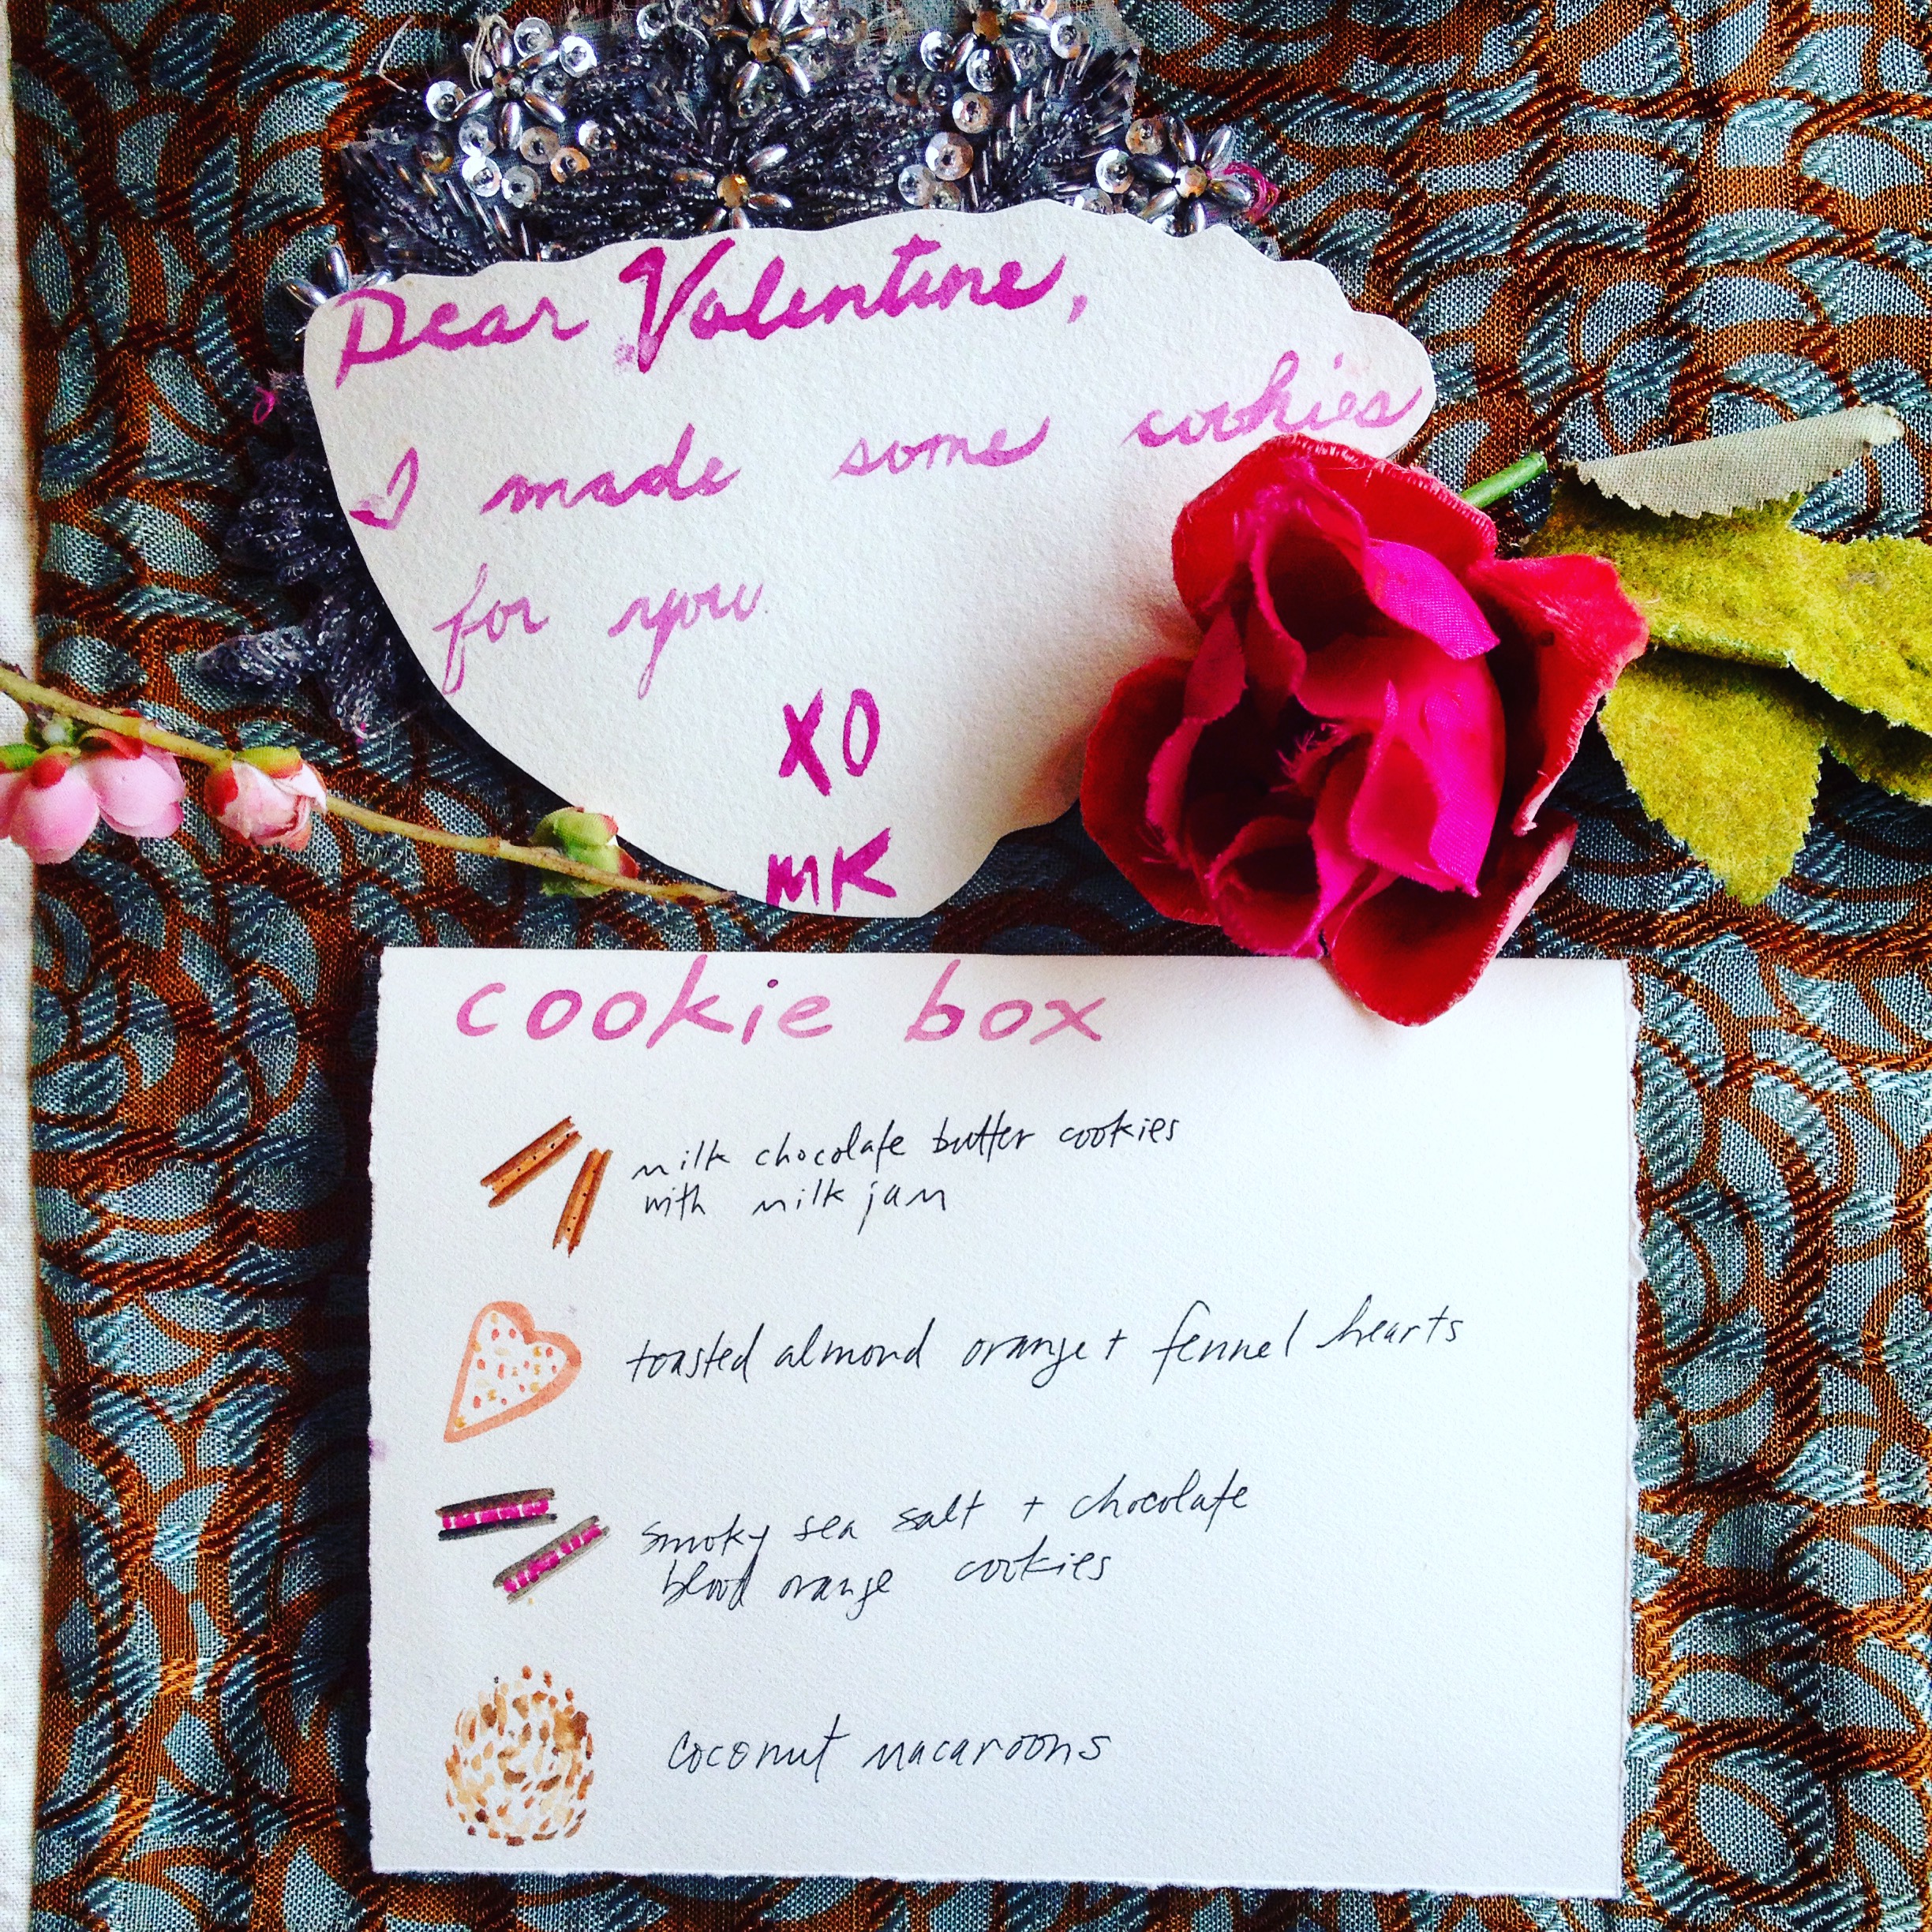 Dear Valentine,
I made some cookies
for you
XO
MK
cookie box
milk chocolate butter cookies
with milk jam
toasted almond orange + fennel hearts
smoky sea salt + chocolate
blood orange cookies
coconut macaroons